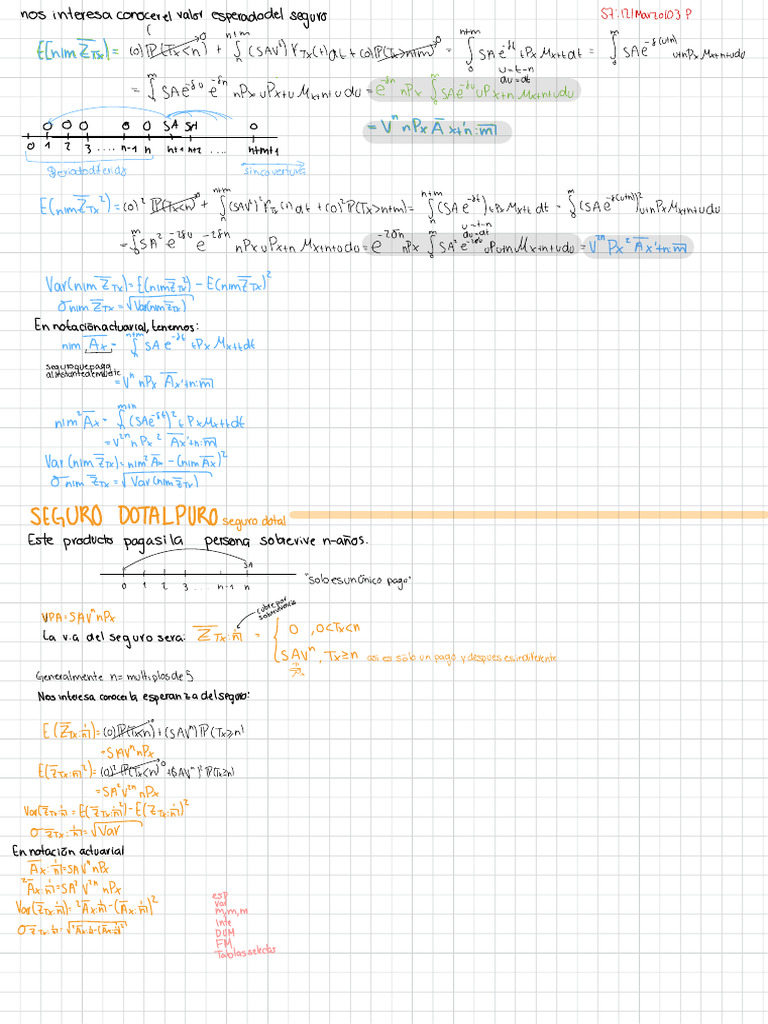 nos interesa conocer el valor esperado del seguro
S7: 12/Mar 2003 P
E(n|m Z̅Tx) = (0) P(Tx<n) + ∫ₙⁿ⁺ᵐ (SAVᵗ) fTx(t)dt + (0) P(Tx>n+m) = ∫ₙⁿ⁺ᵐ SAe^{-δt} tPx Mx+t dt = ∫₀ᵐ SAe^{-δ(u+n)} u+nPx Mx+n+u du
u=t-n
du=dt
= ∫₀ᵐ SAe^{-δu} e^{-δn} nPx uPx+n Mx+n+u du = e^{-δn} nPx ∫₀ᵐ SAe^{-δu} uPx+n Mx+n+u du
0 0 0 0 0 SA SA 0
= Vⁿ nPx A̅x+'n:m̅|
0 1 2 3 .... n-1 n n+1 n+2 .... n+m+1
sin cobertura
E(n|m Z̅Tx²) = (0)² P(Tx<n) + ∫ₙⁿ⁺ᵐ (SAVᵗ)² fTx(t)dt + (0)² P(Tx>n+m) = ∫ₙⁿ⁺ᵐ (SAe^{-δt})² tPx Mx+t dt = ∫₀ᵐ (SAe^{-δ(u+n)})² u+nPx Mx+n+u du
u=t-n
du=dt
= ∫₀ᵐ SA² e^{-2δu} e^{-2δn} nPx uPx+n Mx+n+u du = e^{-2δn} nPx ∫₀ᵐ SA² e^{-2δu} uPx+n Mx+n+u du = V²ⁿ Px ² A̅x'+n:m̅|
Var(n|m Z̅Tx) = E(n|m Z̅Tx²) - E(n|m Z̅Tx)²
σ n|m Z̅Tx = √Var(n|m Z̅Tx)
En notación actuarial, tenemos:
n|m A̅x = ∫ₙⁿ⁺ᵐ SA e^{-δt} tPx Mx+t dt
seguro que paga
al instante de muerte
= Vⁿ nPx A̅x'+n:m̅|
n|m ²A̅x = ∫ₙᵐ⁺ⁿ (SAe^{-δt})² tPx Mx+t dt
= V²ⁿ nPx ² A̅x'+n:m̅|
Var(n|m Z̅Tx) = n|m ²A̅x - (n|m A̅x)²
σ n|m Z̅Tx = √Var(n|m Z̅Tx)
SEGURO DOTAL PURO seguro dotal
Este producto paga si la persona sobrevive n-años.
SA
0 1 2 3 ... n-1 n
"solo es un único pago"
cubre por
sobrevivencia
VPA = SAVⁿ nPx
La v.a del seguro sera: Z̅Tx:n̅| = { 0 , 0<Tx<n
SAVⁿ, Tx≥n asi es solo un pago y despues es indiferente
Generalmente n= multiplos de 5
Nos interesa conocer la esperanza del seguro:
E(Z̅Tx:n̅|) = (0) P(Tx<n) + (SAVⁿ) P(Tx≥n)
= SAVⁿ nPx
E(Z̅Tx:n̅|²) = (0)² P(Tx<n) + (SAVⁿ)² P(Tx≥n)
= SA² V²ⁿ nPx
Var(Z̅Tx:n̅|) = E(Z̅Tx:n̅|²) - E(Z̅Tx:n̅|)²
σ Z̅Tx:n̅| = √Var
En notación actuarial
A̅x:n̅| = SAVⁿ nPx
²A̅x:n̅| = SA² V²ⁿ nPx
Var(Z̅Tx:n̅|) = ²A̅x:n̅| - (A̅x:n̅|)²
σ Z̅Tx:n̅| = √²A̅x:n̅| - (A̅x:n̅|)²
esp
var
m,m,m
Inte
DUM
FM
Tablas selectas